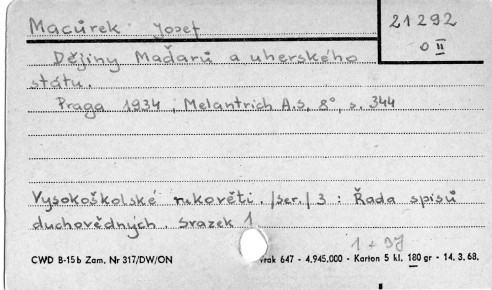 Macůrek Josef
21292
O II
Dějiny Maďarů a uherského
státu.
Praga 1934, Melantrich A.S, 8°, s. 344
Vysokoškolské rukověti. /ser./ 3 : Řada spisů
duchovědných. svazek 1
1 + 9J
CWD B-15b Zam. Nr 317/DW/ON
647 - 4.945.000 - Karton 5 kl. 180 gr - 14. 3. 68.